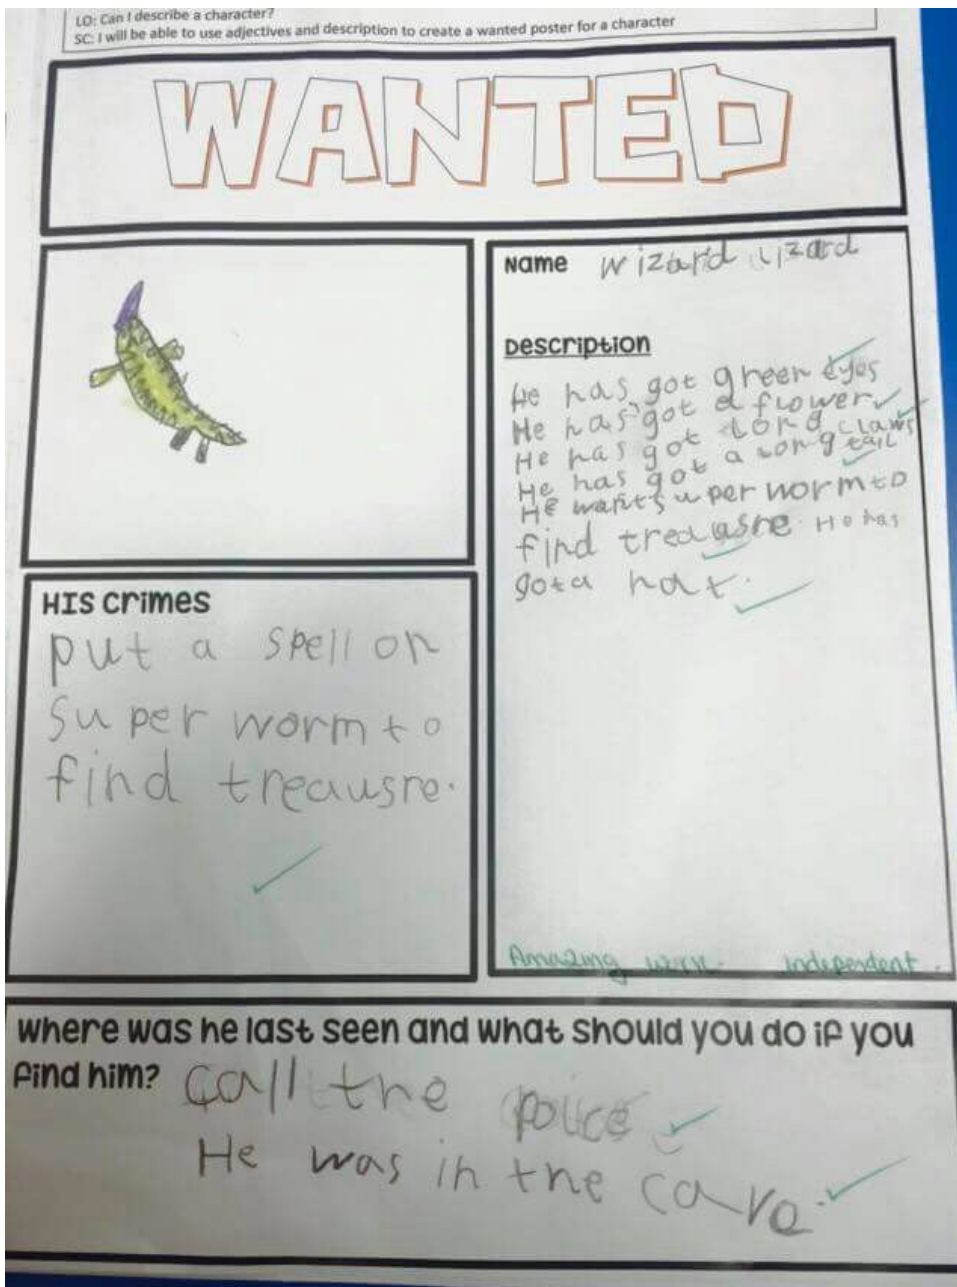 LO: Can I describe a character?
SC: I will be able to use adjectives and description to create a wanted poster for a character
WANTED
Name wizard lizard
Description
He has got green eyes
He has got a flower
He has got long claws
He has got a long tail
He wants uper worm to
find treausre. He has
got a hat.
HIS crimes
put a spell on
Super worm to
find treausre.
Amazing work. independent.
Where was he last seen and what should you do if you
find him? Call the police
He was in the cave.